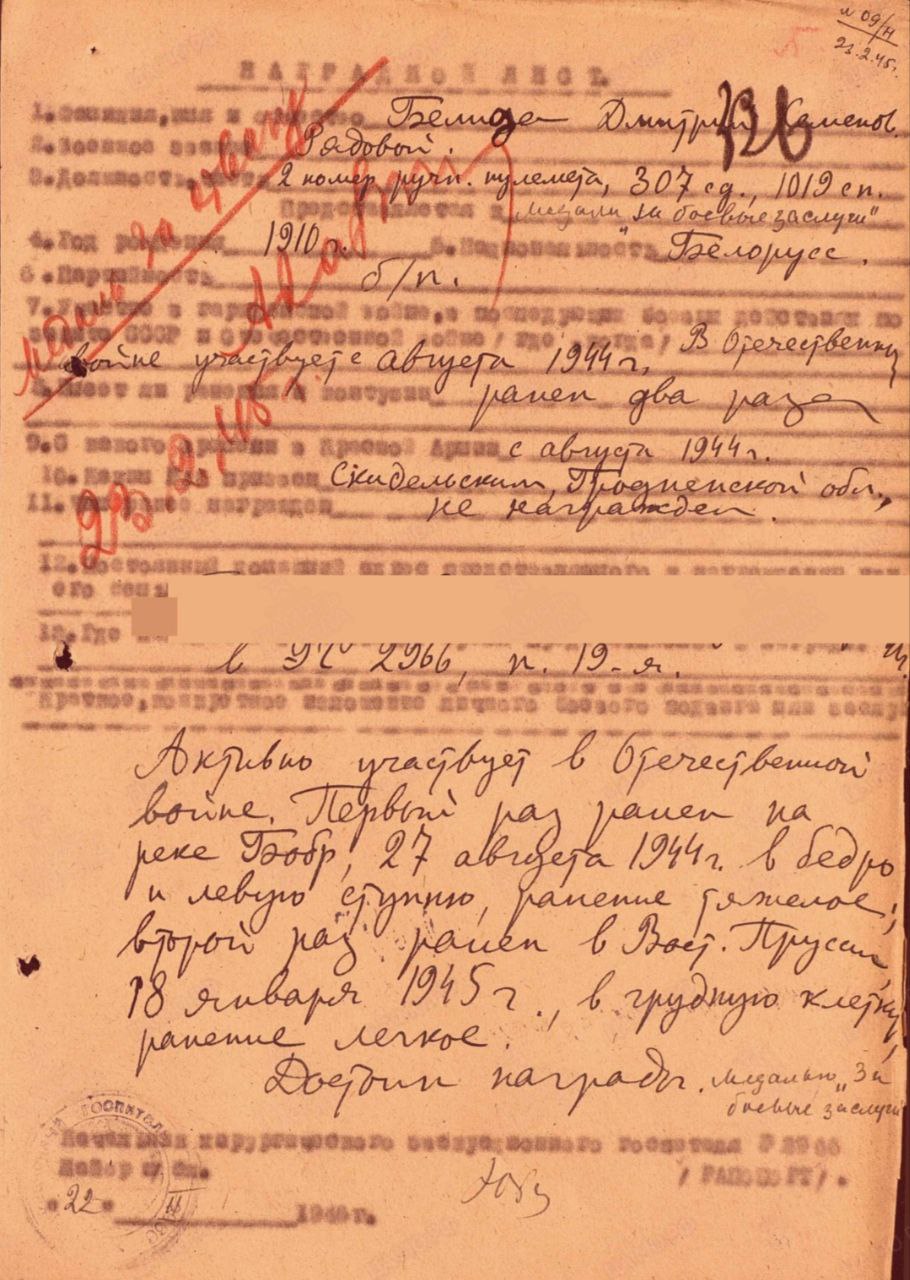 № 09/н
23.2.45г.
НАГРАДНОЙ ЛИСТ.
1. Фамилия, имя и отчество Дмитрий Семенов.
2. Военное звание Рядовой.
3. Должность, часть 2 номер ручн. пулемета, 307 сд., 1019 сп.
Представляется к "медали "За боевые заслуги"
4. Год рождения 1910 г. 5. Национальность Белорусс.
6. Партийность б/п.
7. Участие в гражданской войне, в последующих боевых действиях по
защите СССР и отечественной войне /где, когда/ В Отечественной
войне участвует с августа 1944 г.
8. Имеет ли ранения и контузии ранен два раза
9. С какого времени в Красной Армии с августа 1944 г.
10. Каким РВК призван Скидельским, Гродненской обл.,
11. Чем ранее награжден не награжден.
медаль За отвагу
23.2.45 г.
12. Постоянный домашний адрес представляемого к награждению и
его семьи
13. Где
в ЭГ 2966, п. 19-я.
Краткое, конкретное изложение личного боевого подвига или заслуг
Активно участвует в Отечественной
войне. Первый раз ранен на
реке Бобр, 27 августа 1944 г. в бедро
и левую ступню, ранение тяжелое,
второй раз ранен в Вост. Пруссии,
18 января 1945 г., в грудную клетку,
ранение легкое.
Достоин награды. медалью "За
боевые заслуги
Начальник хирургического эвакуационного госпиталя № 2966
Майор м/сл. /РАПОПОРТ/.
"22" II 1945 г.